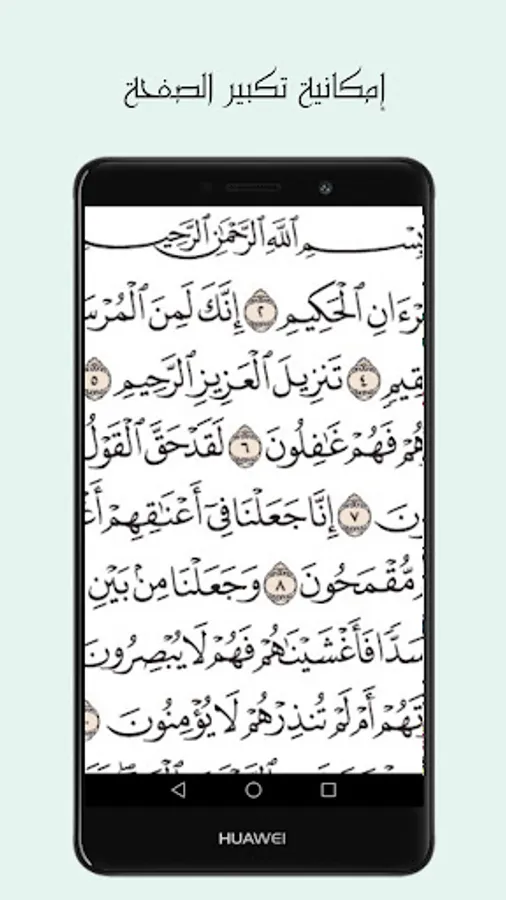 إمكانية تكبير الصفحة
بِسْمِ ٱللَّهِ ٱلرَّحْمَٰنِ ٱلرَّحِيمِ
رْءَانِ ٱلْحَكِيمِ ٢ إِنَّكَ لَمِنَ ٱلْمُرْسَ
قِيمٍ ٤ تَنزِيلَ ٱلْعَزِيزِ ٱلرَّحِيمِ ٥
هُمْ فَهُمْ غَٰفِلُونَ ٦ لَقَدْ حَقَّ ٱلْقَوْلُ
ونَ ٧ إِنَّا جَعَلْنَا فِىٓ أَعْنَٰقِهِمْ أَغْ
مُّقْمَحُونَ ٨ وَجَعَلْنَا مِنۢ بَيْنِ
سَدًّا فَأَغْشَيْنَٰهُمْ فَهُمْ لَا يُبْصِرُونَ
تَهُمْ أَمْ لَمْ تُنذِرْهُمْ لَا يُؤْمِنُونَ
HUAWEI